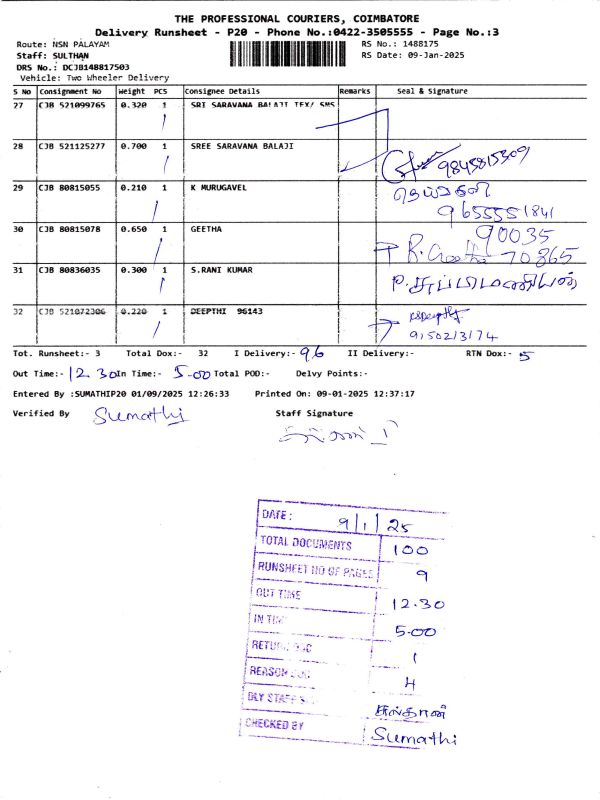 THE PROFESSIONAL COURIERS, COIMBATORE
Delivery Runsheet - P20 - Phone No.:0422-3505555 - Page No.:3
Route: NSN PALAYAM RS No.: 1488175
Staff: SULTHAN RS Date: 09-Jan-2025
DRS No.: DCJB148817503
Vehicle: Two Wheeler Delivery
S No Consignment No Weight PCS Consignee Details Remarks Seal & Signature
27 CJB 521099765 0.320 1 SRI SARAVANA BALAJI TEX/ SMS
28 CJB 521125277 0.700 1 SREE SARAVANA BALAJI 9845815309
29 CJB 80815055 0.210 1 K MURUGAVEL
9655551841
30 CJB 80815078 0.650 1 GEETHA 90035
R. Geetha 70865
31 CJB 80836035 0.300 1 S.RANI KUMAR
32 CJB 521072306 0.220 1 DEEPTHI 96143
9150213174
Tot. Runsheet:- 3 Total Dox:- 32 I Delivery:- 96 II Delivery:- RTN Dox:- 5
Out Time:- 12.30 In Time:- 5.00 Total POD:- Delvy Points:-
Entered By :SUMATHIP20 01/09/2025 12:26:33 Printed On: 09-01-2025 12:37:17
Verified By Sumathi Staff Signature
DATE: 9/1/25
TOTAL DOCUMENTS 100
RUNSHEET NO OF PAGES 9
OUT TIME 12.30
IN TIME 5.00
RETURN DOC 1
REASON DOC 4
DLY STAFF சுல்தான்
CHECKED BY Sumathi